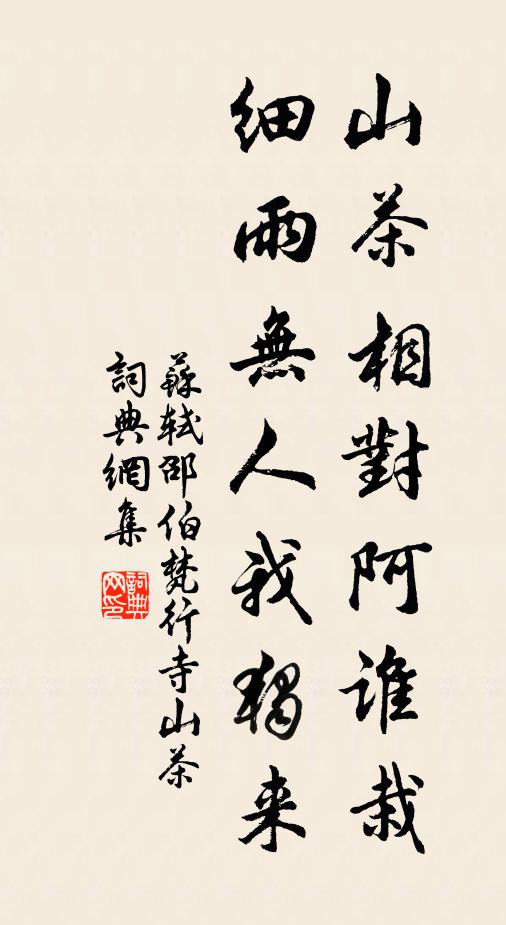 山茶相對阿誰栽
細雨無人我獨来
蘇軾邵伯梵行寺山茶
詞典網集
詞典
网印